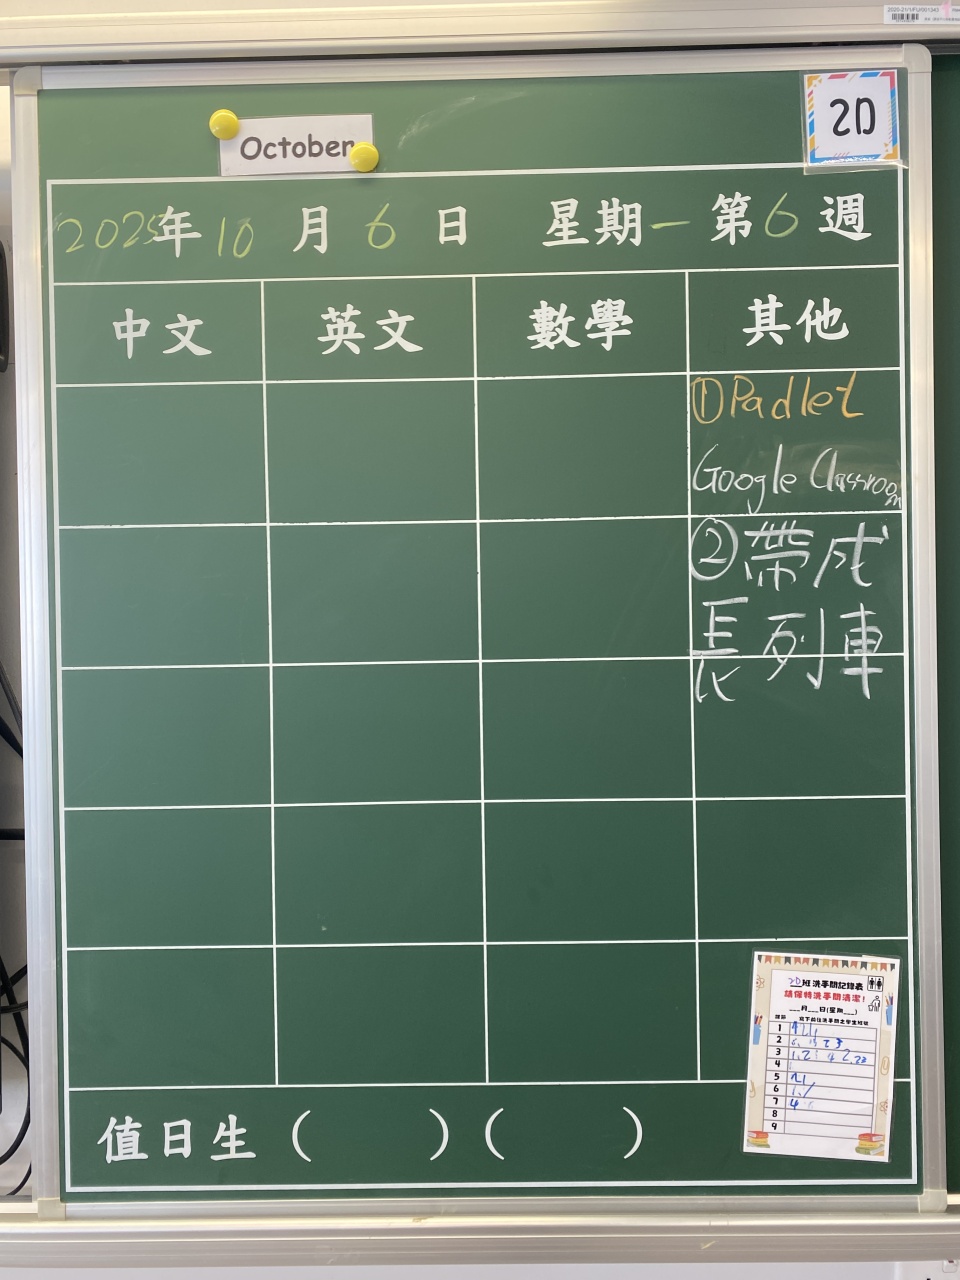 2020-21/1/FU/001343
October
2D
2025年10月6日 星期一 第6週
中文 英文 數學 其他
①Padlet
Google Classroom
②帶成
長列車
2D班洗手間記錄表
請保持洗手間清潔!
___月___日(星期___)
1
2
3
4
5
6
7 4
8
9
值日生 ( ) ( )